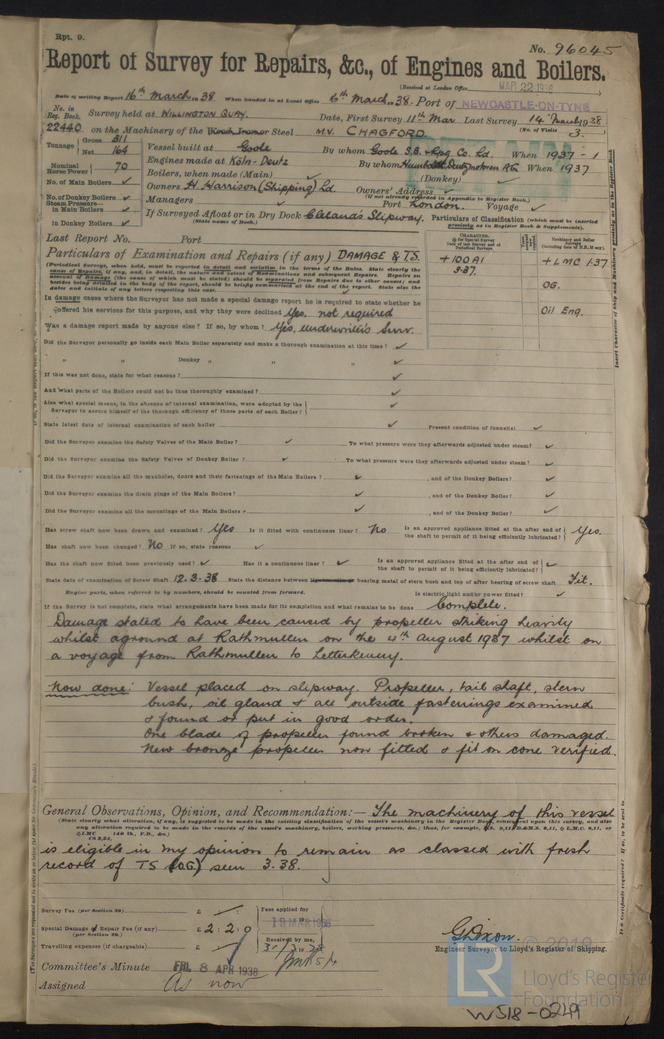 Rpt. 9.
No. 96045
Report of Survey for Repairs, &c., of Engines and Boilers.
(Received at London Office MAR 22 1938
Date of writing Report 16th March 1938 When handed in at Local Office 6th March 1938. Port of NEWCASTLE-ON-TYNE
No. in Reg. Book. Survey held at WILLINGTON QUAY. Date, First Survey 11th Mar Last Survey 14 March 1938
22440 on the Machinery of the Wood, Iron or Steel M.V. CHAGFORD. (No. of Visits 3.
Tonnage Gross 311 Net 164 Vessel built at Goole By whom Goole S.B. & Rpg Co. Ld. When 1937 - 1
Nominal Horse Power 70 Engines made at Köln-Deutz By whom Humboldt Deutzmotoren AG When 1937
No. of Main Boilers ✓ Boilers, when made (Main) ✓ (Donkey) ✓
No. of Donkey Boilers ✓ Owners H. Harrison (Shipping) Ld. Owners' Address ✓
(If not already recorded in Appendix to Register Book.)
Steam Pressure— in Main Boilers ✓ Managers ✓ Port London. Voyage ✓
in Donkey Boilers ✓ If Surveyed Afloat or in Dry Dock Cleland's Slipway.
(State name of Dock.)
Particulars of Classification (which must be inserted precisely as in Register Book & Supplements).
Last Report No. Port
Particulars of Examination and Repairs (if any) DAMAGE & TS.
+ 100 A1 3.37. + LMC 1.37
OG.
Oil Eng.
In damage cases where the Surveyor has not made a special damage report he is required to state whether he
offered his services for this purpose, and why they were declined Yes. not required
Was a damage report made by anyone else? If so, by whom? Yes, underwriters Surv.
Did the Surveyor personally go inside each Main Boiler separately and make a thorough examination at this time? ✓
" " Donkey " " " ✓
If this was not done, state for what reasons? ✓
And what parts of the Boilers could not be thoroughly examined? ✓
Also what special means, in the absence of internal examination, were adopted by the
Surveyor to assure himself of the thorough efficiency of those parts of each Boiler? ✓
State latest date of internal examination of each boiler ✓ Present condition of funnel(s) ✓
Did the Surveyor examine the Safety Valves of the Main Boiler? ✓ To what pressure were they afterwards adjusted under steam? ✓
Did the Surveyor examine the Safety Valves of Donkey Boiler? ✓ To what pressure were they afterwards adjusted under steam? ✓
Did the Surveyor examine all the manholes, doors and their fastenings of the Main Boilers? ✓ , and of the Donkey Boilers? ✓
Did the Surveyor examine the drain plugs of the Main Boilers? ✓ , and of the Donkey Boilers? ✓
Did the Surveyor examine all the mountings of the Main Boilers? ✓ , and of the Donkey Boilers? ✓
Has screw shaft now been drawn and examined? Yes Is it fitted with continuous liner? No Is an approved appliance fitted at the after end of the shaft to permit of it being efficiently lubricated? Yes.
Has shaft now been changed? No If so, state reasons ✓
Has the shaft now fitted been previously used? ✓ Has it a continuous liner? ✓ Is an approved appliance fitted at the after end of the shaft to permit of it being efficiently lubricated? ✓
State date of examination of Screw Shaft 12.3.38 State the distance between bearing metal of stern bush and top of after bearing of screw shaft Fit.
Engine parts, when referred to by numbers, should be counted from forward. Is electric light and/or power fitted? ✓
If the Survey is not complete, state what arrangements have been made for its completion and what remains to be done Complete.
Damage stated to have been caused by propeller striking heavily
whilst aground at Rathmullen on the 4th August 1937 whilst on
a voyage from Rathmullen to Letterkenny.
Now done: Vessel placed on slipway. Propeller, tail shaft, stern
bush, oil gland & all outside fastenings examined
& found or put in good order.
One blade of propeller found broken & others damaged.
New bronze propeller now fitted & fit on cone verified.
General Observations, Opinion, and Recommendation:— The machinery of this vessel
is eligible in my opinion to remain as classed with fresh
record of TS (OG) seen 3.38.
Survey Fee (per Section 29) £ —
Special Damage & Repair Fee (if any) (per Section 29.) £ 2 : 2 : 0
Travelling expenses (if chargeable) £ —
Fees applied for
18 MAR 1938
Received by me,
G. Dixon.
Engineer Surveyor to Lloyd's Register of Shipping.
Committee's Minute FRI. 8 APR 1938
Assigned As now
© 2019
LR Lloyd's Register Foundation
W518-0249